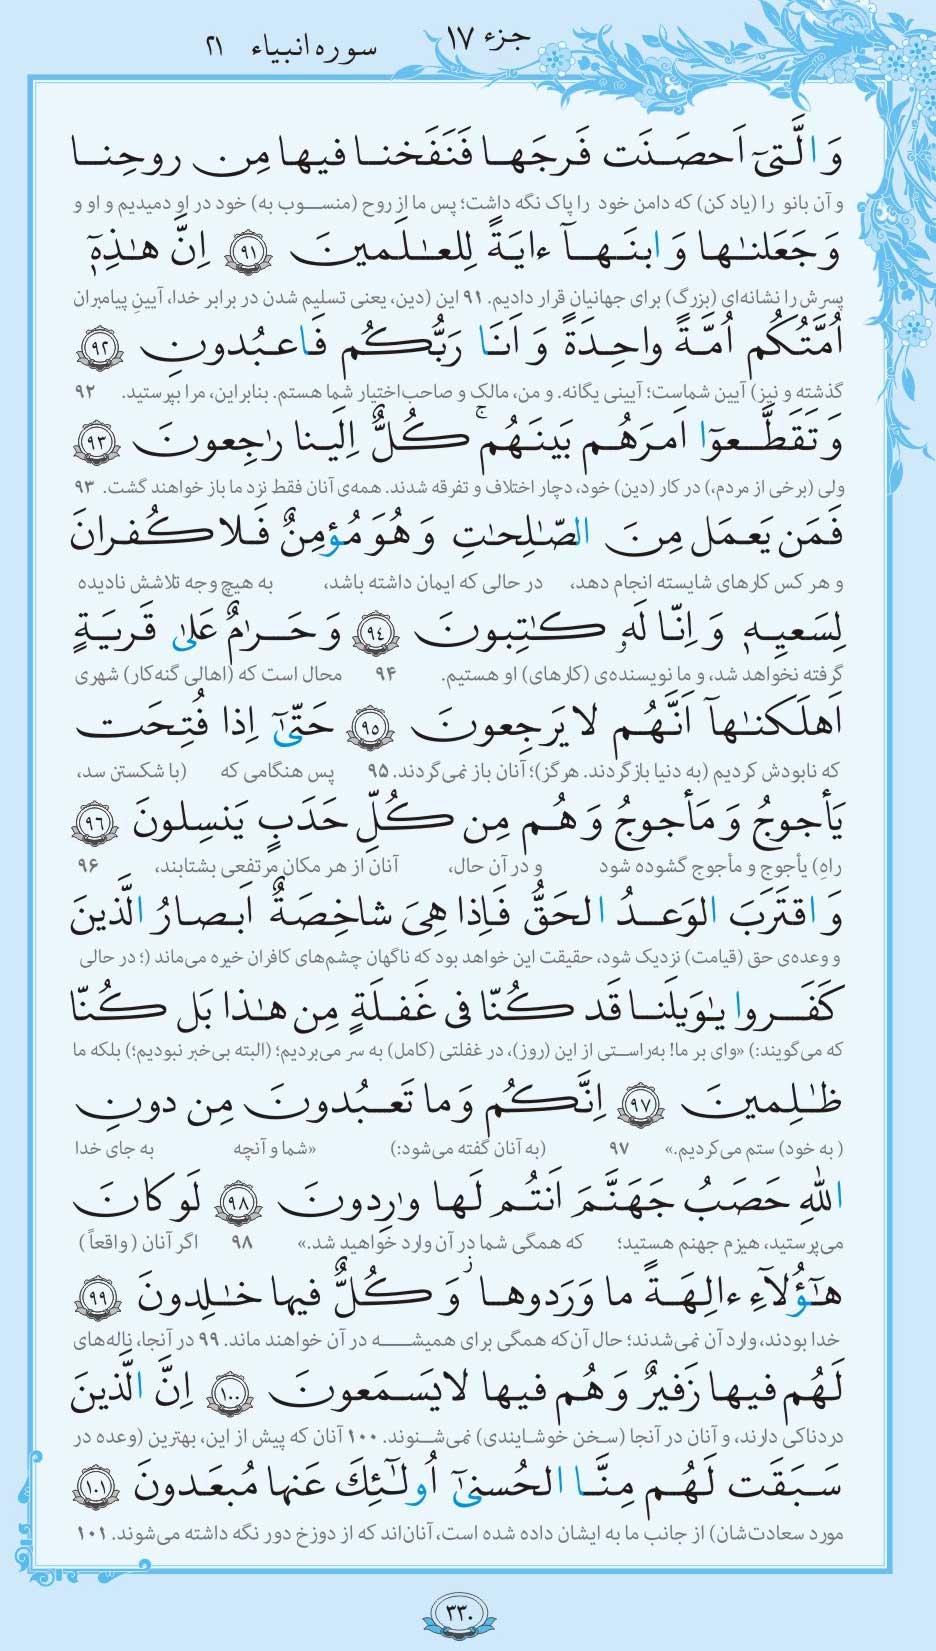 جزء ۱۷
سوره انبیاء ۲۱
وَ الَّتیٓ اَحصَنَت فَرجَها فَنَفَخنا فیها مِن روحِنا
و آن بانو را (یاد کن) که دامن خود را پاک نگه داشت؛ پس ما از روح (منسوب به) خود در او دمیدیم و او و
وَ جَعَلنٰها وَ ابنَهآ ءایَةً لِلعٰلَمینَ ﴿۹۱﴾ اِنَّ هٰذِهٖٓ
پسرش را نشانه‌ای (بزرگ) برای جهانیان قرار دادیم. ۹۱ این (دین، یعنی تسلیم شدن در برابر خدا، آیینِ پیامبران
اُمَّتُکُم اُمَّةً واحِدَةً وَ اَنَا رَبُّکُم فَاعبُدونِ ﴿۹۲﴾
گذشته و نیز) آیین شماست؛ آیینی یگانه. و من، مالک و صاحب‌اختیار شما هستم. بنابراین، مرا بپرستید. ۹۲
وَ تَقَطَّعوٓا اَمرَهُم بَینَهُم ۚ کُلٌّ اِلَینا رٰجِعونَ ﴿۹۳﴾
ولی (برخی از مردم،) در کار (دین) خود، دچار اختلاف و تفرقه شدند. همه‌ی آنان فقط نزد ما باز خواهند گشت. ۹۳
فَمَن یَعمَل مِنَ الصّٰلِحٰتِ وَ هُوَ مُؤمِنٌ فَلا کُفرانَ
و هر کس کارهای شایسته انجام دهد، در حالی که ایمان داشته باشد، به هیچ وجه تلاشش نادیده
لِسَعیِهٖ وَ اِنّا لَهٗ کٰتِبونَ ﴿۹۴﴾ وَ حَرٰمٌ عَلیٰ قَریَةٍ
گرفته نخواهد شد، و ما نویسنده‌ی (کارهای) او هستیم. ۹۴ محال است که (اهالی گنه‌کار) شهری
اَهلَکنٰهآ اَنَّهُم لا یَرجِعونَ ﴿۹۵﴾ حَتّیٰٓ اِذا فُتِحَت
که نابودش کردیم (به دنیا بازگردند. هرگز)؛ آنان باز نمی‌گردند. ۹۵ پس هنگامی که (با شکستن سد،
یَأجوجُ وَ مَأجوجُ وَ هُم مِن کُلِّ حَدَبٍ یَنسِلونَ ﴿۹۶﴾
راهِ) یأجوج و مأجوج گشوده شود و در آن حال، آنان از هر مکان مرتفعی بشتابند، ۹۶
وَ اقتَرَبَ الوَعدُ الحَقُّ فَاِذا هِیَ شاخِصَةٌ اَبصارُ الَّذینَ
و وعده‌ی حق (قیامت) نزدیک شود، حقیقت این خواهد بود که ناگهان چشم‌های کافران خیره می‌ماند (؛ در حالی
کَفَروا یٰوَیلَنا قَد کُنّا فی غَفلَةٍ مِن هٰذا بَل کُنّا
که می‌گویند:) «وای بر ما! به‌راستی از این (روز)، در غفلتی (کامل) به سر می‌بردیم؛ (البته بی‌خبر نبودیم؛) بلکه ما
ظٰلِمینَ ﴿۹۷﴾ اِنَّکُم وَ ما تَعبُدونَ مِن دونِ
( به خود) ستم می‌کردیم.» ۹۷ (به آنان گفته می‌شود:) «شما و آنچه به جای خدا
اللّٰهِ حَصَبُ جَهَنَّمَ اَنتُم لَها وٰرِدونَ ﴿۹۸﴾ لَو کانَ
می‌پرستید، هیزم جهنم هستید؛ که همگی شما در آن وارد خواهید شد.» ۹۸ اگر آنان (واقعاً)
هٰٓؤُلآءِ ءالِهَةً ما وَرَدوها ۖ وَ کُلٌّ فیها خٰلِدونَ ﴿۹۹﴾
خدا بودند، وارد آن نمی‌شدند؛ حال آن‌که همگی برای همیشه در آن خواهند ماند. ۹۹ در آنجا، ناله‌های
لَهُم فیها زَفیرٌ وَ هُم فیها لا یَسمَعونَ ﴿۱۰۰﴾ اِنَّ الَّذینَ
دردناکی دارند، و آنان در آنجا (سخن خوشایندی) نمی‌شنوند. ۱۰۰ آنان که پیش از این، بهترین (وعده در
سَبَقَت لَهُم مِنَّا الحُسنیٰٓ اُولٰٓئِكَ عَنها مُبعَدونَ ﴿۱۰۱﴾
مورد سعادت‌شان) از جانب ما به ایشان داده شده است، آنان‌اند که از دوزخ دور نگه داشته می‌شوند. ۱۰۱
۳۳۰